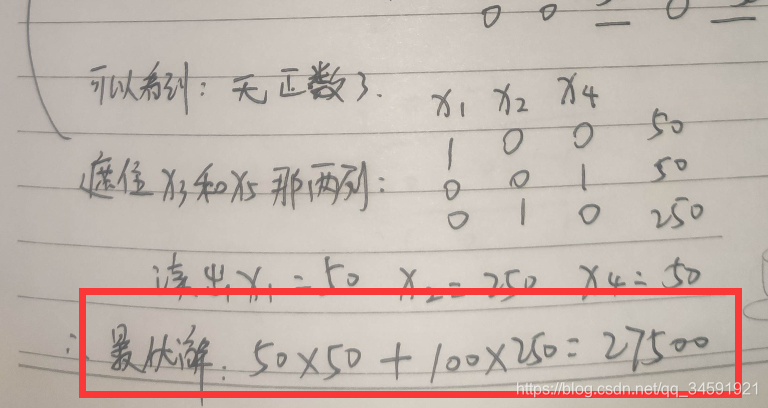 0 0 0
可以看到：无正数了.
x₁ x₂ x₄
1 0 0 50
遮住x₃和x₅那两列：
0 0 1 50
0 1 0 250
读出x₁=50 x₂=250 x₄=50
∴最优解：50×50+100×250=27500
https://blog.csdn.net/qq_34591921